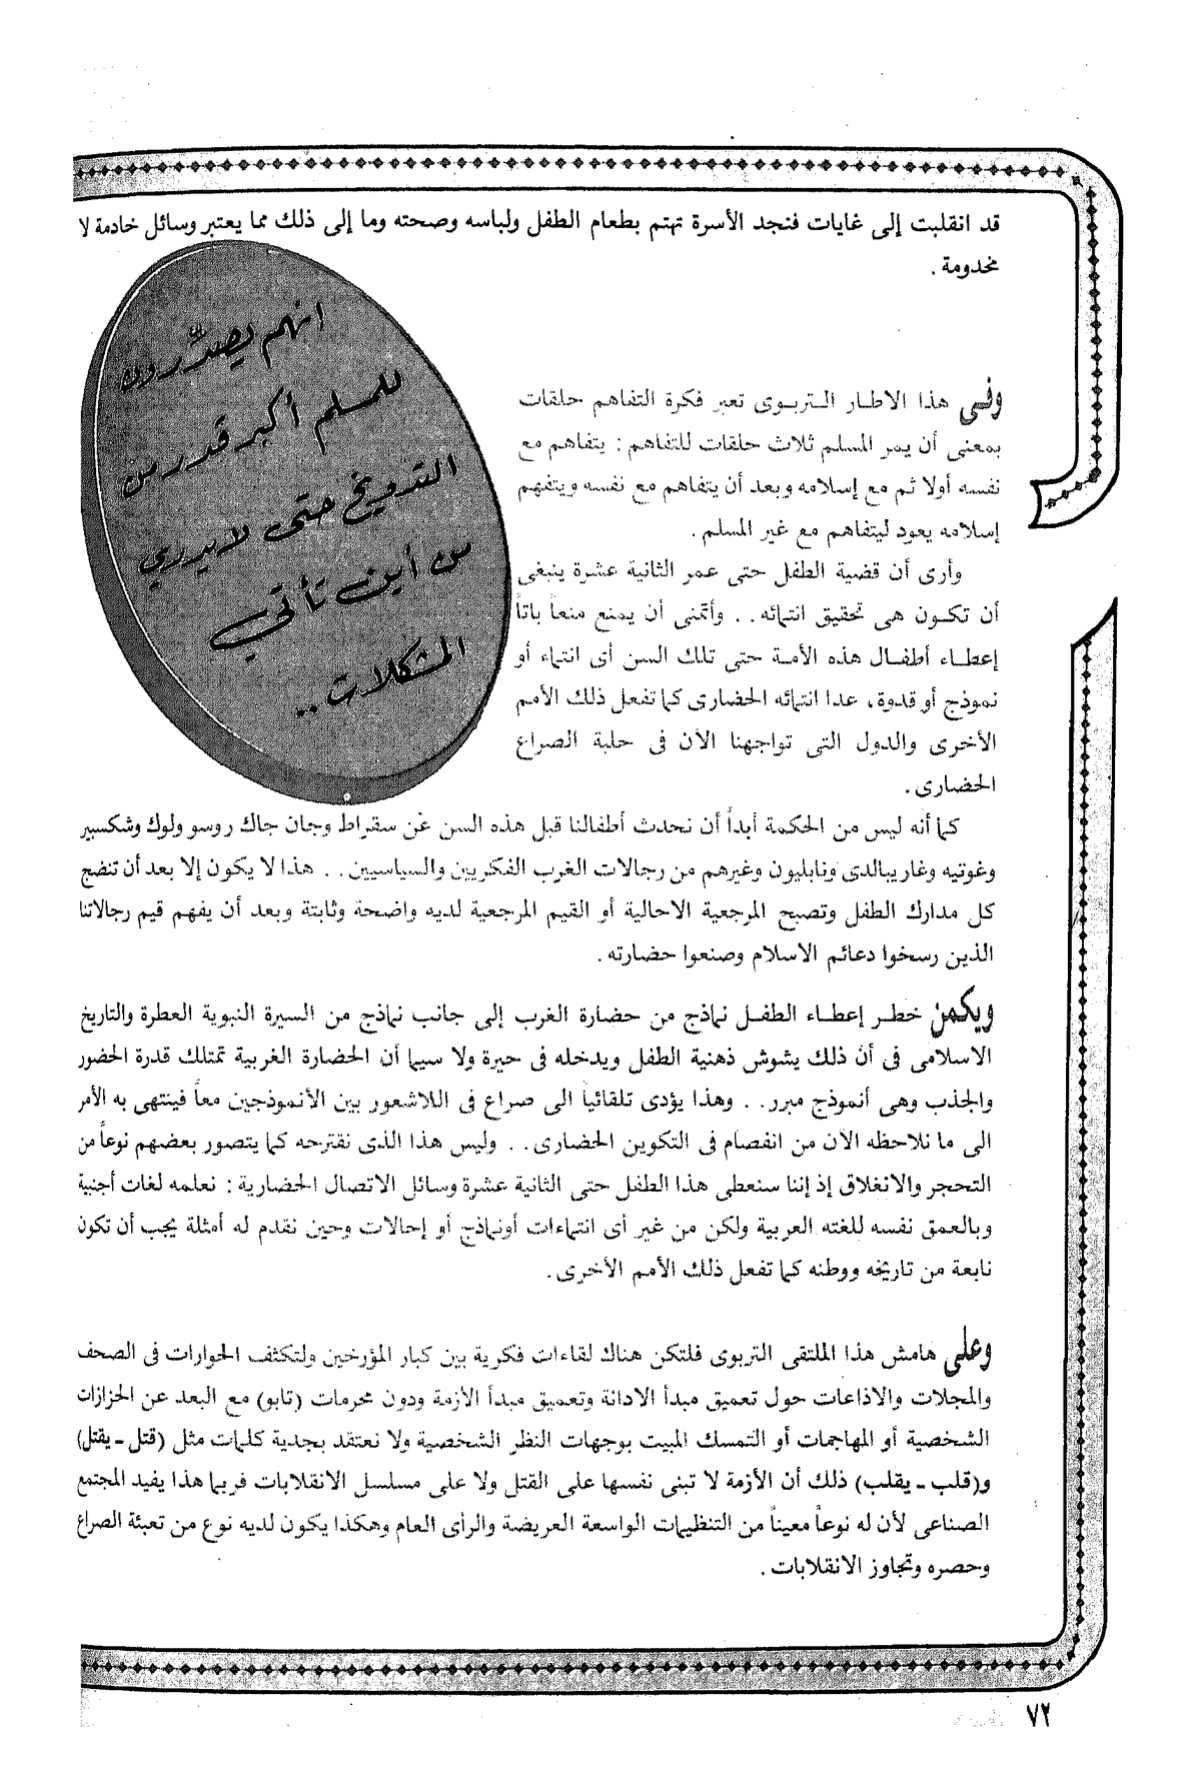 قد انقلبت إلى غايات فنجد الأسرة تهتم بطعام الطفل ولباسه وصحته وما إلى ذلك مما يعتبر وسائل خادمة لا
مخدومة .
انهم يصدّرون
للمسلم أكبر قدر من
التدويخ حتى لا يدري
من أين تأتي
المشكلات ..
وفى هذا الاطار التربوى تعبر فكرة التفاهم حلقات
بمعنى أن يمر المسلم ثلاث حلقات للتفاهم : يتفاهم مع
نفسه أولا ثم مع إسلامه وبعد أن يتفاهم مع نفسه ويتفهم
إسلامه يعود ليتفاهم مع غير المسلم .
وأرى أن قضية الطفل حتى عمر الثانية عشرة ينبغى
أن تكون هى تحقيق انتمائه . . وأتمنى أن يمنع منعاً باتاً
إعطاء أطفال هذه الأمة حتى تلك السن أى انتماء أو
نموذج أو قدوة ، عدا انتمائه الحضارى كما تفعل ذلك الأمم
الأخرى والدول التى تواجهنا الآن فى حلبة الصراع
الحضارى .
كما أنه ليس من الحكمة أبداً أن نحدث أطفالنا قبل هذه السن عن سقراط وجان جاك روسو ولوك وشكسبير
وغوتيه وغاريبالدى ونابليون وغيرهم من رجالات الغرب الفكريين والسياسيين . . هذا لا يكون إلا بعد أن تنضج
كل مدارك الطفل وتصبح المرجعية الاحالية أو القيم المرجعية لديه واضحة وثابتة وبعد أن يفهم قيم رجالاتنا
الذين رسخوا دعائم الاسلام وصنعوا حضارته .
ويكمن خطر إعطاء الطفل نماذج من حضارة الغرب إلى جانب نماذج من السيرة النبوية العطرة والتاريخ
الاسلامى فى أن ذلك يشوش ذهنية الطفل ويدخله فى حيرة ولا سيما أن الحضارة الغربية تمتلك قدرة الحضور
والجذب وهى أنموذج مبرر . . وهذا يؤدى تلقائياً الى صراع فى اللاشعور بين الأنموذجين معاً فينتهى به الأمر
الى ما نلاحظه الآن من انفصام فى التكوين الحضارى . . وليس هذا الذى نقترحه كما يتصور بعضهم نوعاً من
التحجر والانغلاق إذ إننا سنعطى هذا الطفل حتى الثانية عشرة وسائل الاتصال الحضارية : نعلمه لغات أجنبية
وبالعمق نفسه للغته العربية ولكن من غير أى انتماءات أونماذج أو إحالات وحين نقدم له أمثلة يجب أن تكون
نابعة من تاريخه ووطنه كما تفعل ذلك الأمم الأخرى .
وعلى هامش هذا الملتقى التربوى فلتكن هناك لقاءات فكرية بين كبار المؤرخين ولتكثف الحوارات فى الصحف
والمجلات والاذاعات حول تعميق مبدأ الادانة وتعميق مبدأ الأزمة ودون محرمات (تابو) مع البعد عن الحزازات
الشخصية أو المهاجمات أو التمسك المبيت بوجهات النظر الشخصية ولا نعتقد بجدية كلمات مثل (قتل - يقتل)
و(قلب - يقلب) ذلك أن الأزمة لا تبنى نفسها على القتل ولا على مسلسل الانقلابات فربما هذا يفيد المجتمع
الصناعى لأن له نوعاً معيناً من التنظيمات الواسعة العريضة والرأى العام وهكذا يكون لديه نوع من تعبئة الصراع
وحصره وتجاوز الانقلابات .
٧٢